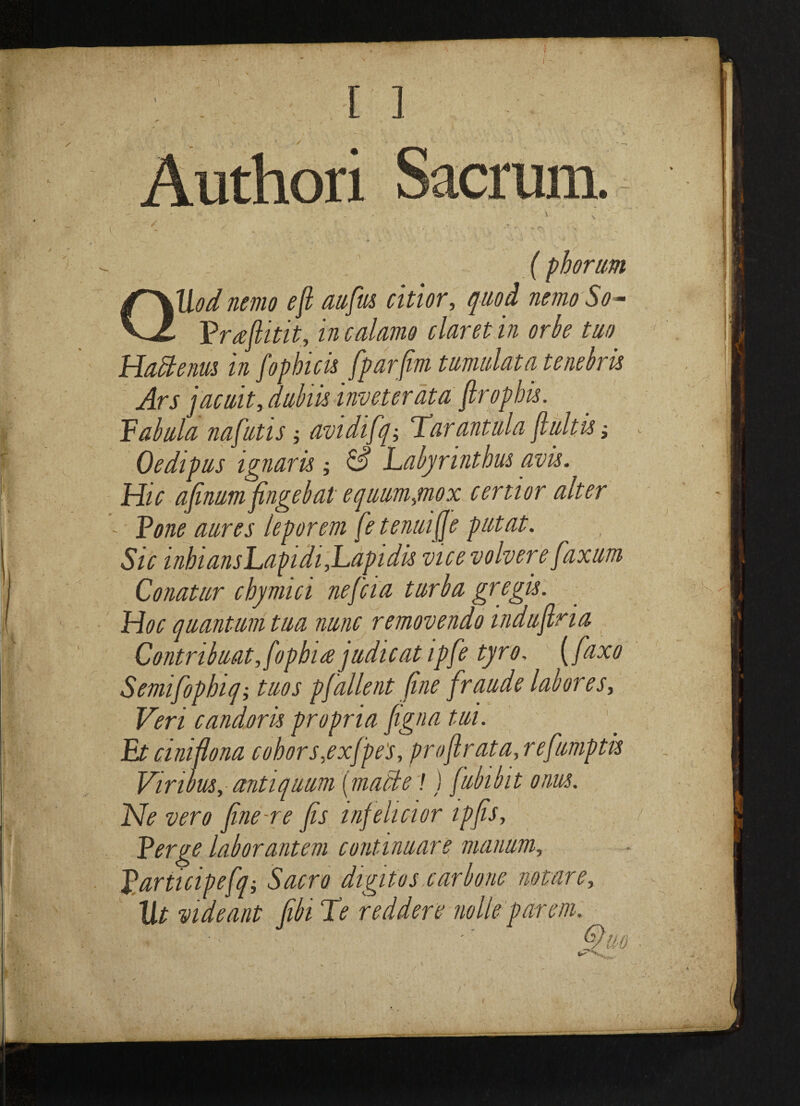 [ ]
Authori Sacrum.
( phorum
QUod nemo eſt auſus citior, quod nemo So-
Præſtitit, in calamo claret in orbe tuo
Hactenus in ſophicis ſparſim tumulata tenebris
Ars jacuit, dubiis inveterata ſtrophis.
Fabula naſutis ; avidiſq; Tarantula ſtultis ;
Oedipus ignaris ; & Labyrinthus avis.
Hic aſinum fingebat equum,mox certior alter
Pone aures leporem ſe tenuiſſe putat.
Sic inhiansLapidi,Lapidis vice volvere ſaxum
Conatur chymici neſcia turba gregis.
Hoc quantum tua nunc removendo induſtria
Contribuat,ſophiæ judicat ipſe tyro. (faxo
Semiſophiq; tuos pſallent ſine fraude labores,
Veri candoris propria ſigna tui.
Et ciniflona cohors,exſpes, proſtrata,reſumptis
Viribus, antiquum (macte ! ) ſubibit onus.
Ne vero ſine-re ſis infelicior ipſis,
Perge laborantem continuare manum,
Participeſq; Sacro digitos carbone notare,
Ut videant ſibi Te reddere nolle parem.
Quo